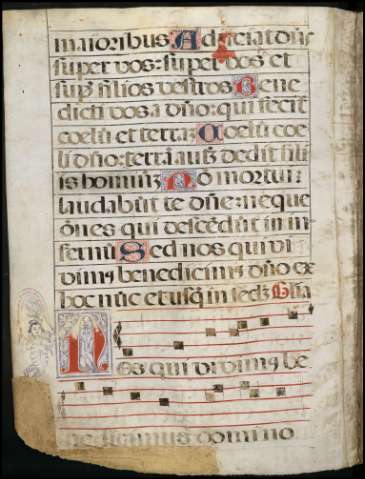 maioribus Adiiciat dn̄s
super vos: super vos et
sup̄ filios vestros Bene
dicti vos a dn̄o: qui fecit
coelū et terrā Coelū coe
li dn̄o: terrā aut̄ dedit fili
is hominū Nō mortui
laudabūt te dn̄e: neque
ōnes qui descēdūt in in-
fernū Sed nos qui vi
vimꝰ benedicimꝰ dn̄o ex
hoc nūc et usq̄ in secł̄ Glīa
Nos qui vivimꝰ be
nedicamus domino